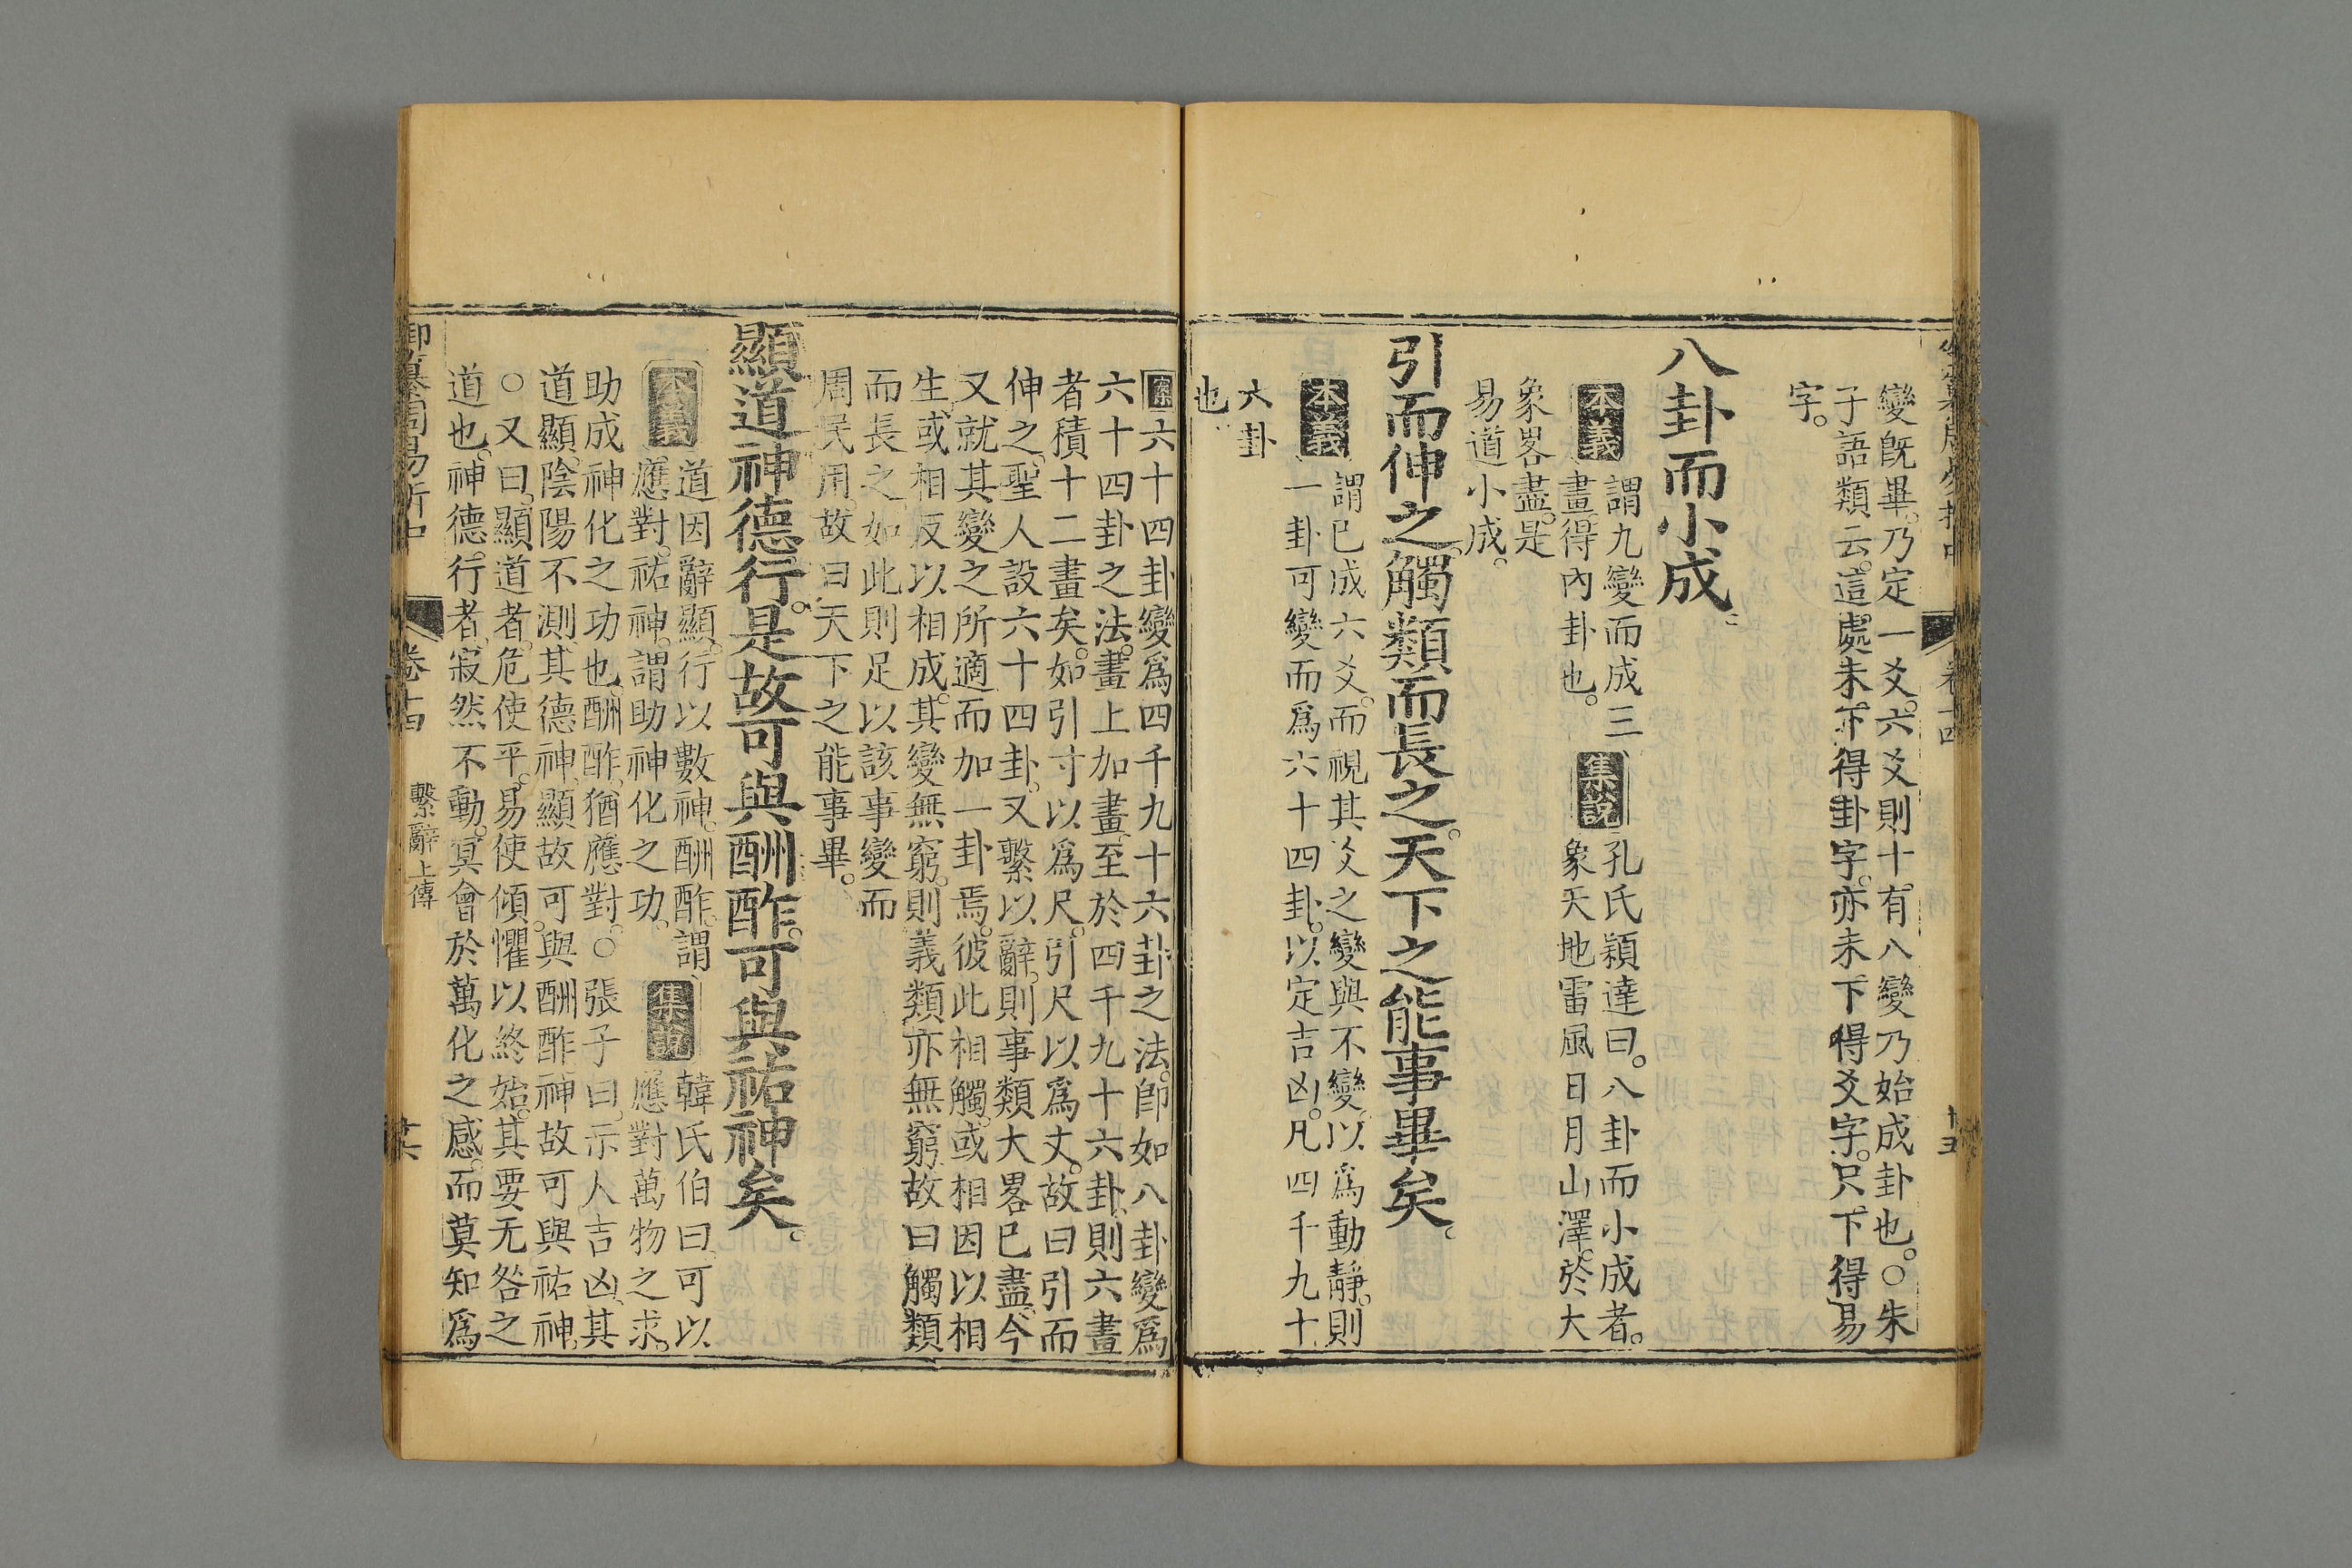 變旣畢。乃定一爻。六爻則十有八變乃始成卦也。○朱
子語類云。這處未下得卦字。亦未下得爻字。只下得易
字。
八卦而小成。
本義
謂九變而成三
畫。得內卦也。
集說
孔氏穎達曰。八卦而小成者。
象天地雷風日月山澤。於大
象畧盡。是
易道小成。
引而伸之。觸類而長之。天下之能事畢矣。
本義
謂已成六爻。而視其爻之變與不變。以爲動靜。則
一卦可變而爲六十四卦。以定吉凶。凡四千九十
六卦
也。
六十四卦變爲四千九十六卦之法。卽如八卦變爲
六十四卦之法。畫上加畫。至於四千九十六卦。則六畫
者積十二畫矣。如引寸以爲尺。引尺以爲丈。故曰引而
伸之。聖人設六十四卦。又繫以辭。則事類大畧已盡。今
又就其變之所適而加一卦焉。彼此相觸。或相因以相
生。或相反以相成。其變無窮。則義類亦無窮。故曰觸類
而長之。如此則足以該事變而
周民用。故曰天下之能事畢。
顯道神德行。是故可與酬酢。可與祐神矣。
本義
道因辭顯。行以數神。酬酢。謂
應對。祐神。謂助神化之功。
集說
韓氏伯曰。可以
應對萬物之求。
助成神化之功也。酬酢。猶應對。○張子曰。示人吉凶。其
道顯。陰陽不測。其德神。顯故可與酬酢。神故可與祐神。
○又曰。顯道者。危使平。易使傾。懼以終始。其要无咎之
道也。神德行者。寂然不動。冥會於萬化之感。而莫知爲
御纂周易折中
卷十四
繫辭上傳